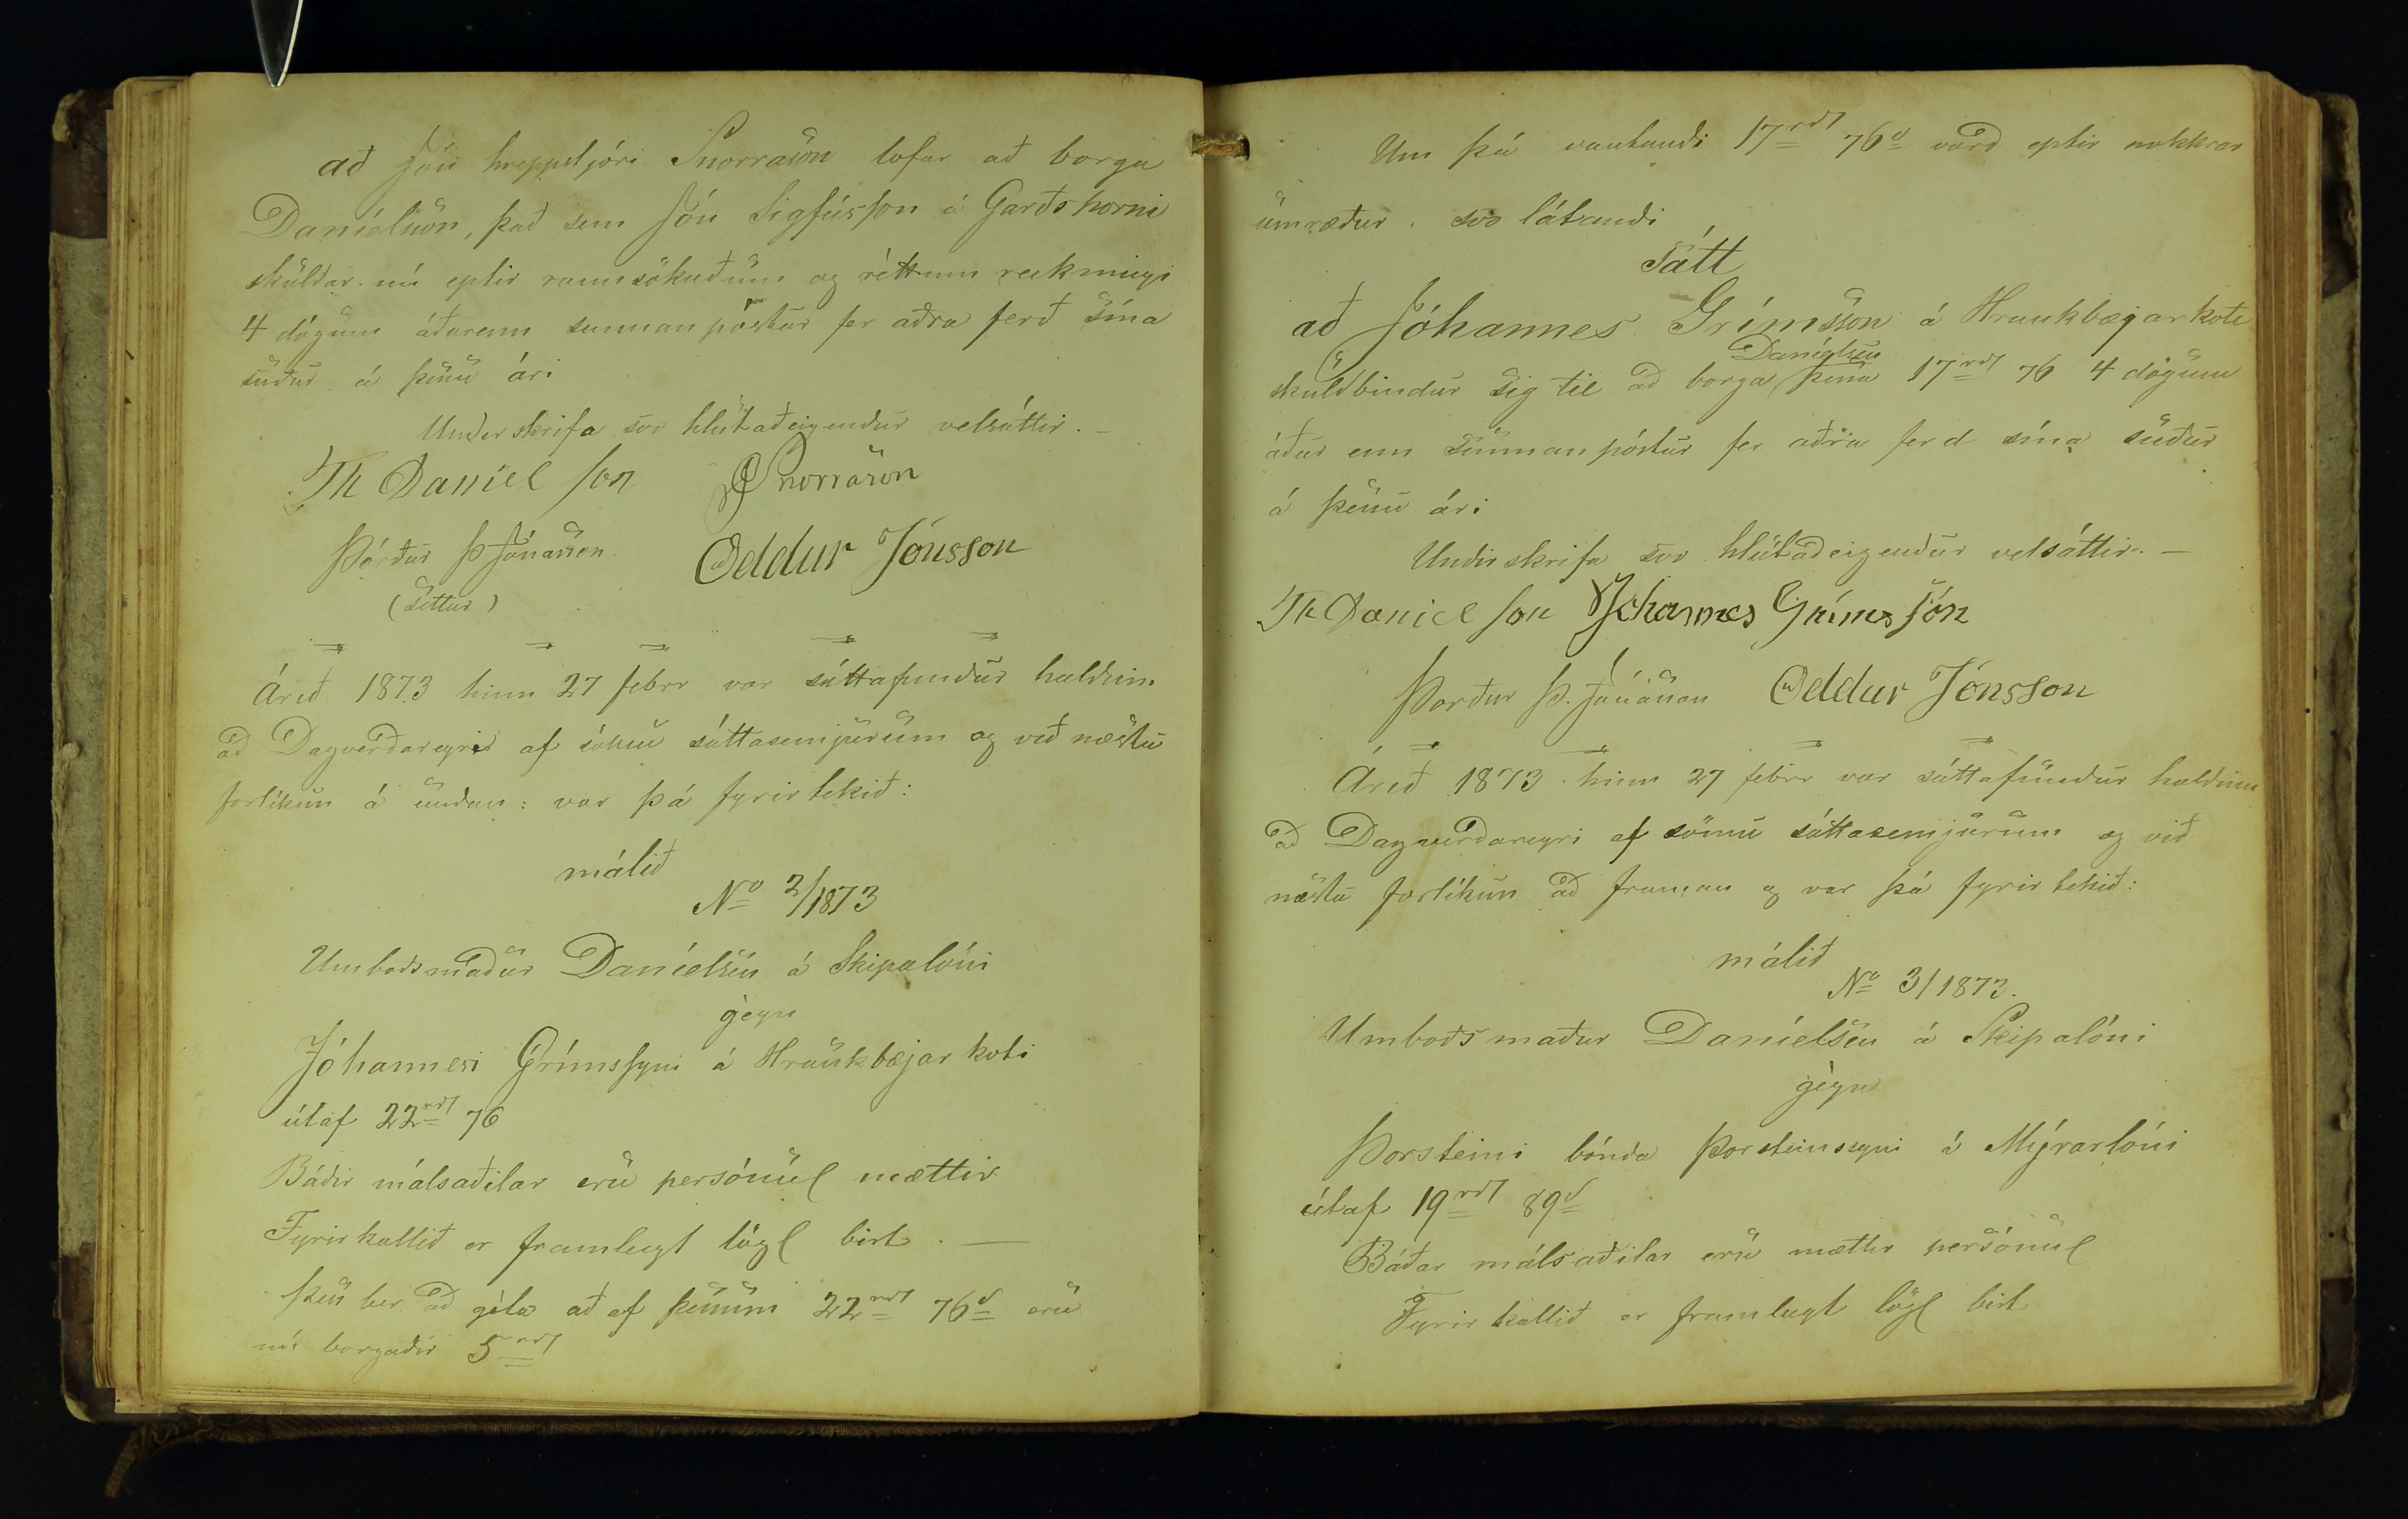 að Jón hreppstjóri Snorrason lofar að borga
Daníelssen, það sem Jón Sigfússon á Garðshorni
skuldar nú eptir rannsökuðum og réttum reikningi
4 dögum áðurenn sunnanpóstur fer aðra ferð sína
suður á þessu ári
Underskrifa svo hlutaðeigendur velsáttir. –
Th Daniel son Snorrason
Þórður Þ Jónasson Oddur Jónsson
(Settur)
Árið 1873 hinn 27 febrr var sáttafundur haldinn
að Dagverðareyri af sömu sáttasemjurum og við næstu
forlíkun á undan: var þá fyrirtekið:
málið
No 2/1873
Umboðsmaður Daníelsen á Skipalóni
gegn
Jóhannesi Grímssyni á Hraukbæjarkoti
útaf 22rdl 76
Báðir málsaðilar eru persónul mættir
Fyrirkallið er framlagt lögl birt. —
Þess ber að geta að af þessum 22rdl 76s eru
nú borgaðir 5rdl
Um þá vantandi 17rdl 76s varð eptir nokkrar
umræður. svo látandi
Sátt
að Jóhannes Grímsson á Hraukbæjarkoti
Daníelsen
skuldbindur sig til að borga þessa 17rdl 76 4 dögum
áður enn sunnanpóstur fer aðra ferd sína suður
á þessu ári
Undirskrifa svo hlutaðeigendur velsáttir. —
Th Daniel son Jóhannes Grímsson
Þorður Þ. Jónasson Oddur Jónsson
Árið 1873 hinn 27 febrr var sáttafundur haldinn
að Dagverdareyri af sömu sáttasemjurum og við
næstu forlíkun að framan og var þá fyrirtekið:
málið
No 3/1873.
Umboðsmaður Daníelsen á Skipalóni
gegn
Þorsteini bónda Þorsteinssyni á Mýrarlóni
útaf 19rdl 89s
Báðar málsaðilar eru mættir persónul
Fyrirkallið er framlagt lögl birt